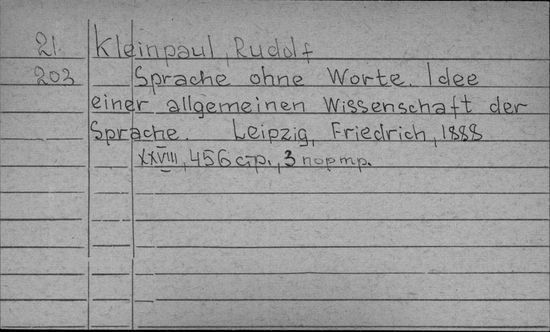 21 Kleinpaul, Rudolf
203 Sprache ohne Worte. Idee
einer allgemeinen Wissenschaft der
Sprache. Leipzig, Friedrich, 1888
XXVIII, 456 стр., 3 портр.